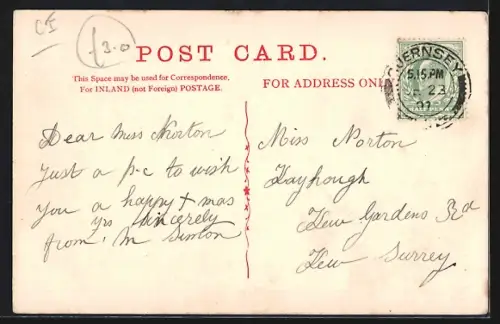 CI
£3.0
POST CARD.
This Space may be used for Correspondence.
For INLAND (not Foreign) POSTAGE.
FOR ADDRESS ONL
GUERNSEY
5.15 PM
23
07
Dear Miss Norton
Just a p-c to wish
you a happy + mas
yrs Sincerely
from M
Miss Norton
Hayhough
Kew Gardens Rd
Kew Surrey